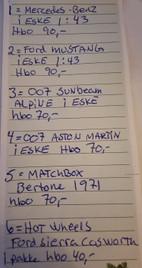 1 = Mercedes-Benz
i ESKE 1:43
Hbo 90,-
2 = Ford MUSTANG
i ESKE 1:43
Hbo 90,-
3 = 007 Sunbeam
ALPINE i ESKE
hbo 70,-
4 = 007 ASTON MARTIN
i ESKE Hbo 70,-
5 = MATCHBOX
Bertone 1971
hbo 70,-
6 = HOT WHEELS
Ford Sierra Casworth
i pakke hbo 40,-